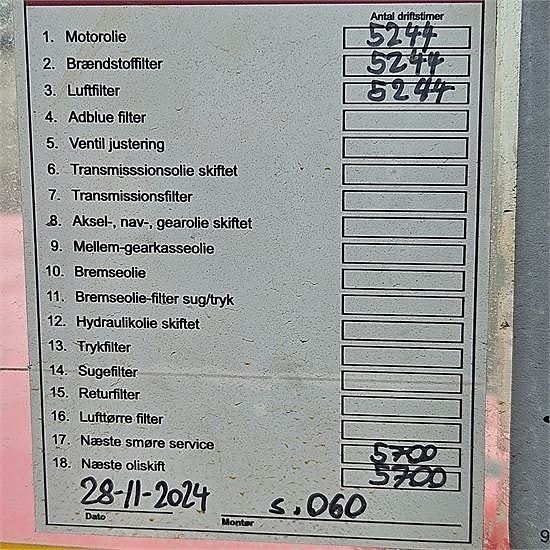 Antal driftstimer
1. Motorolie 5244
2. Brændstoffilter 5244
3. Luftfilter 5244
4. Adblue filter
5. Ventil justering
6. Transmisssionsolie skiftet
7. Transmissionsfilter
8. Aksel-, nav-, gearolie skiftet
9. Mellem-gearkasseolie
10. Bremseolie
11. Bremseolie-filter sug/tryk
12. Hydraulikolie skiftet
13. Trykfilter
14. Sugefilter
15. Returfilter
16. Lufttørre filter
17. Næste smøre service 5700
18. Næste oliskift 5700
28-11-2024 s.060
Dato Montør